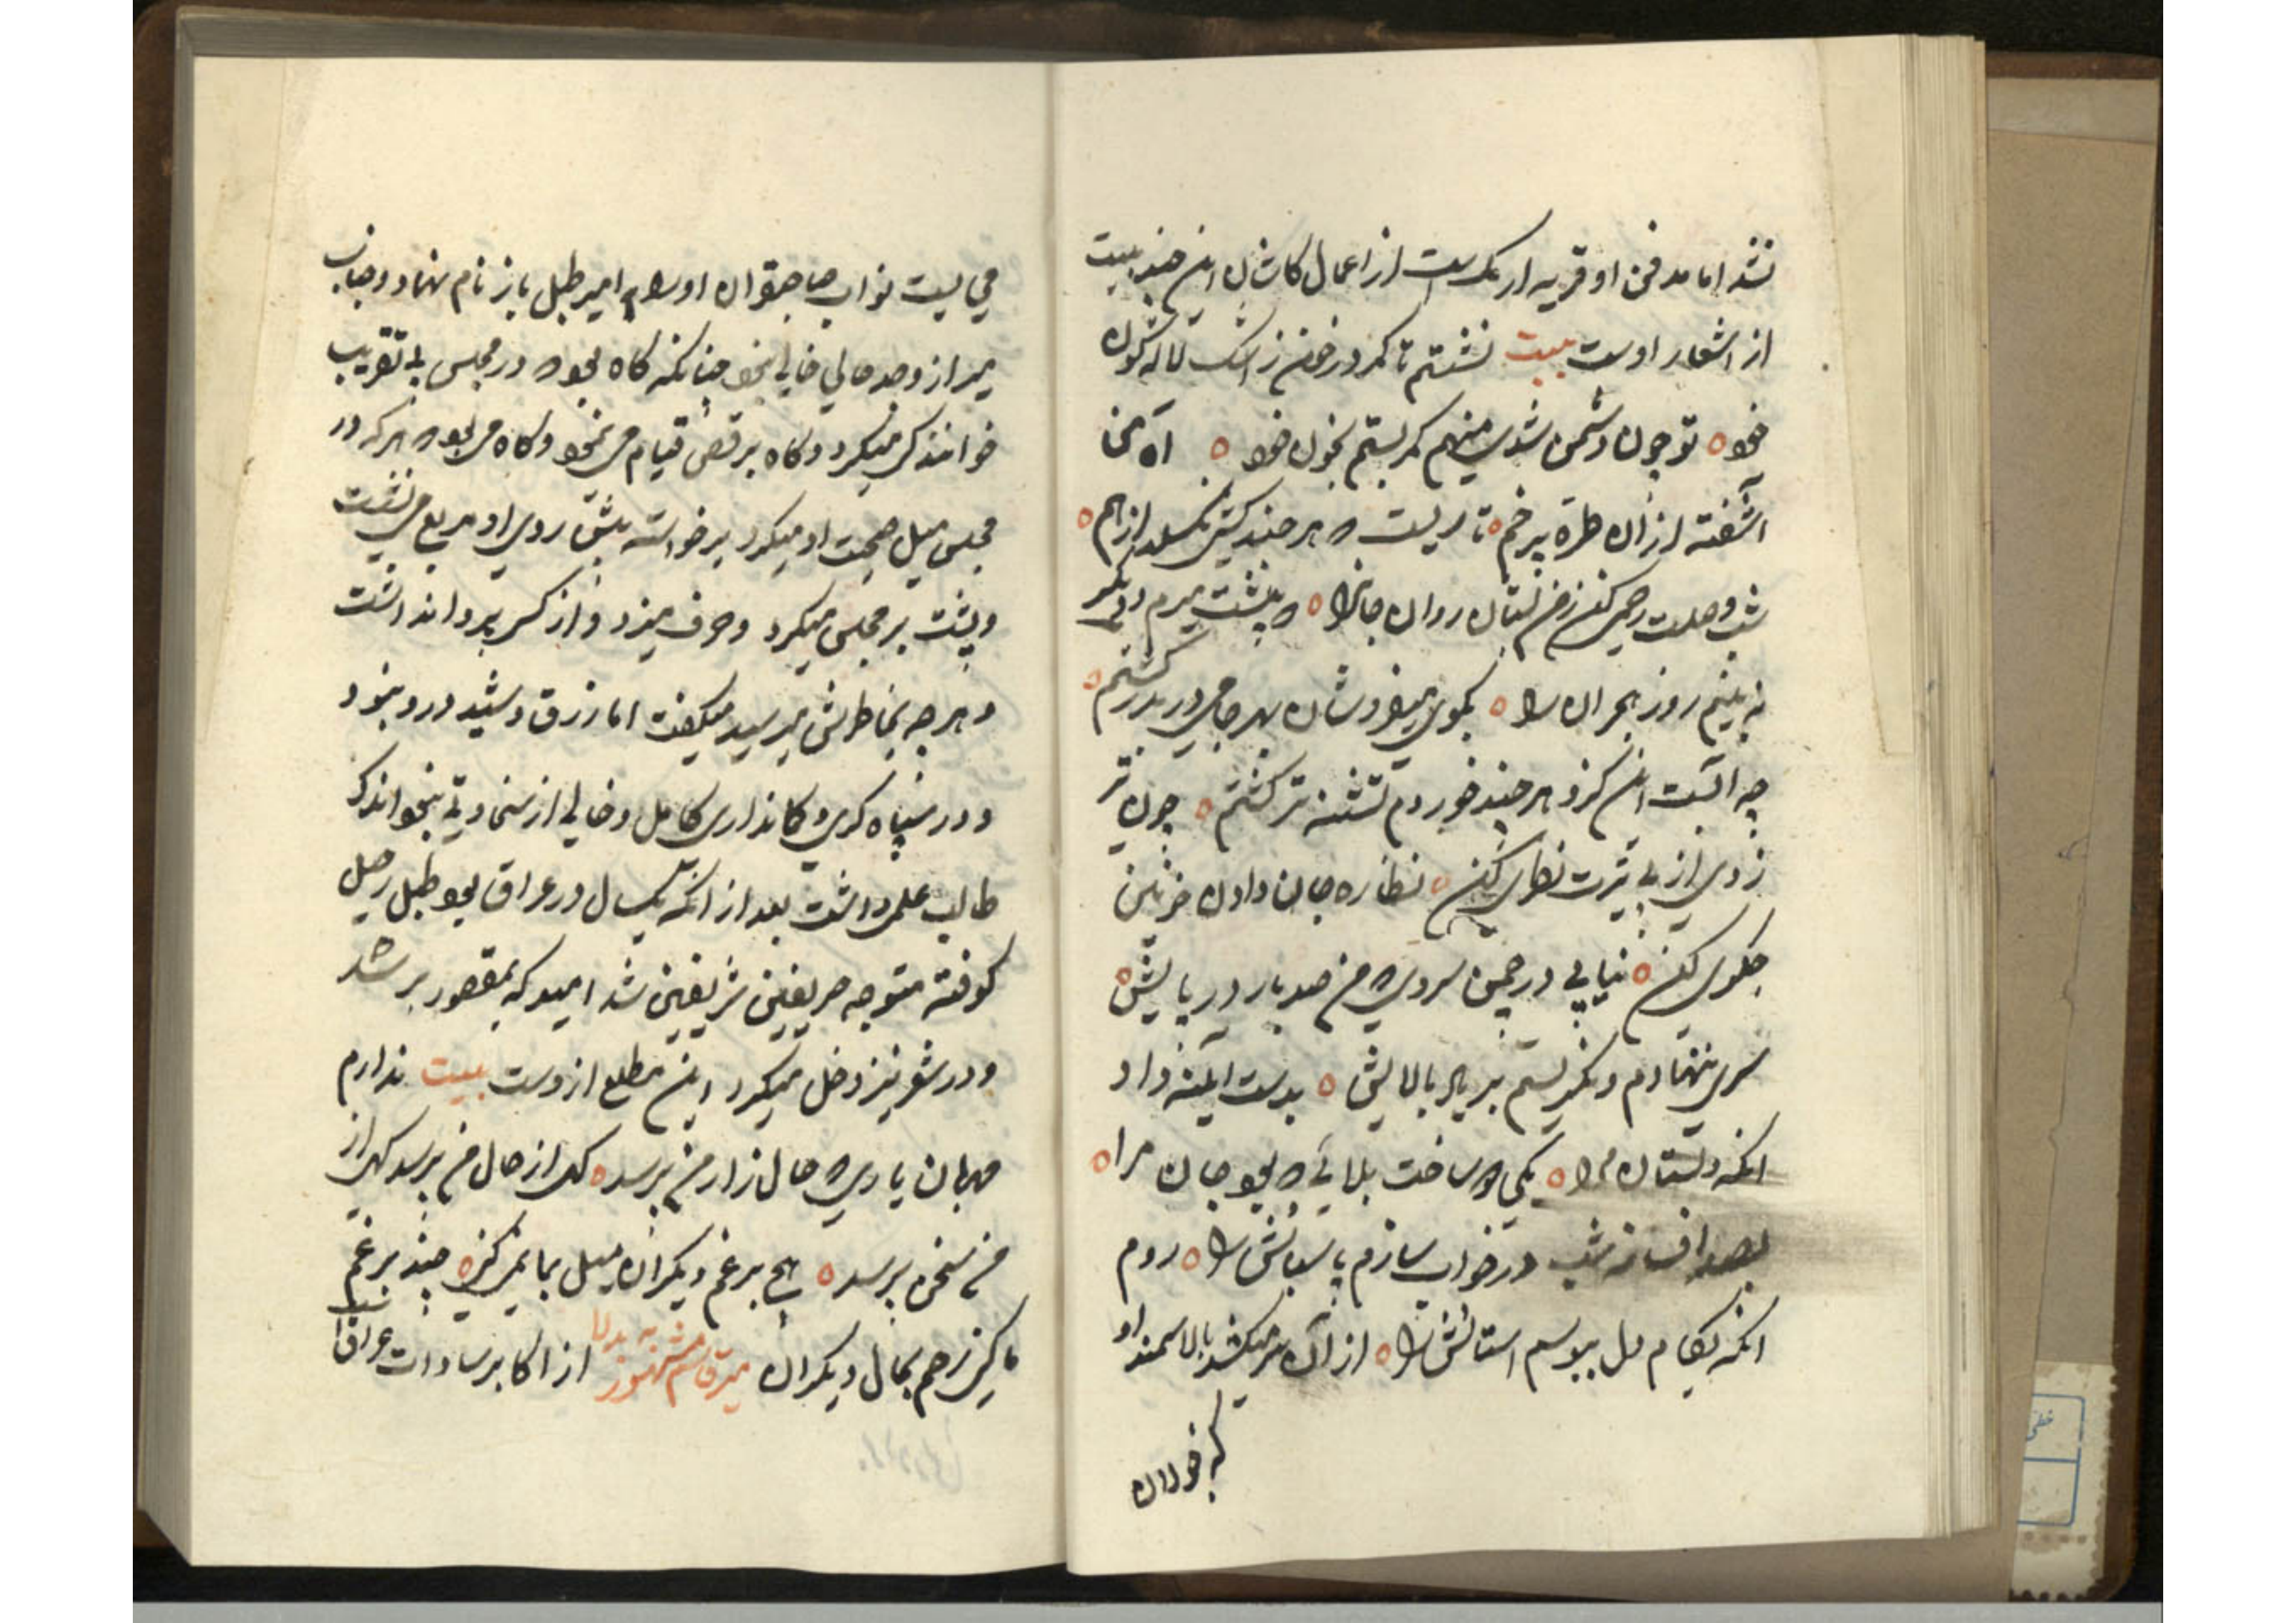 نشد اما مدفن او قریه ارمک است از اعمال کاشان این چند بیت
از اشعار اوست بیت نشستم تا کمر در خون ز اشک لاله کون
خود تو چون دشمن شدی منهم کمر بستم بخون خود آه من
آشفته از ان طره پر خم تا ریست که هر چند کشی نکسلد از هم
شب وصلت رحمی کن ز من بستان روان جانرا که پیشت میرم و دیکر
نه بینم روز هجران را بکوی میفروشان بهر جامی در بدر کشتم
چه آبست این کزو هر چند خوردم تشنه تر کشتم چون تیر
زدی از پی تیرت نظری کن نظاره جان دادن خونین
جکری کن نیابی در چمن سروی که من صد بار در پایش
سری ننهادم و نکریستم بر یاد بالایش بدست آینه داد
انکه دلستان مرا یکی دو ساخت بلائی که بود جان مرا
بصد افسانه شب در خواب سازم پاسبانش را روم
انکه بکام دل ببوسم استانش را از آن سر میکشد بالا سمند او
که خوردان
می بایست نواب صاحبقران اورا امیر طبل باز نام نهاد و جهان
میر از وجد حالی خالی نبود چنانکه کاه بود که در مجلس بی تقریب
خوانندکی میکرد و کاه برقص قیام می نمود و کاه می بود که هر که در
مجلس میل صحبت او میکرد برخواسته پیش روی او مربع می نشست
و پشت بر مجلس میکرد و حرف میزد و از کس پروا نداشت
و هر چه بخاطرش میرسید میکفت اما زرق و شید درو نبود
و در سپاه کری و کمانداری کامل و خالی از سخاوتی نبود اندک
طالب علمی داشت بعد از آنکه یکسال در عراق بود طبل رحیل
کوفته متوجه حریفین شریفین شد امید که بمقصور بر شد
و در شعر نیز دخل میکرد این مطلع ازوست بیت ندارم
مهربان یاری که حال زار من پرسد کر از حال من پرسد کر از
من سخن پرسد هیچ برغم دیکران میل بما نمیکنی چند برغم
ما کنی رحم بحال دیکران میر قاسم مشهور به لالا از اکابر سادات عراق است